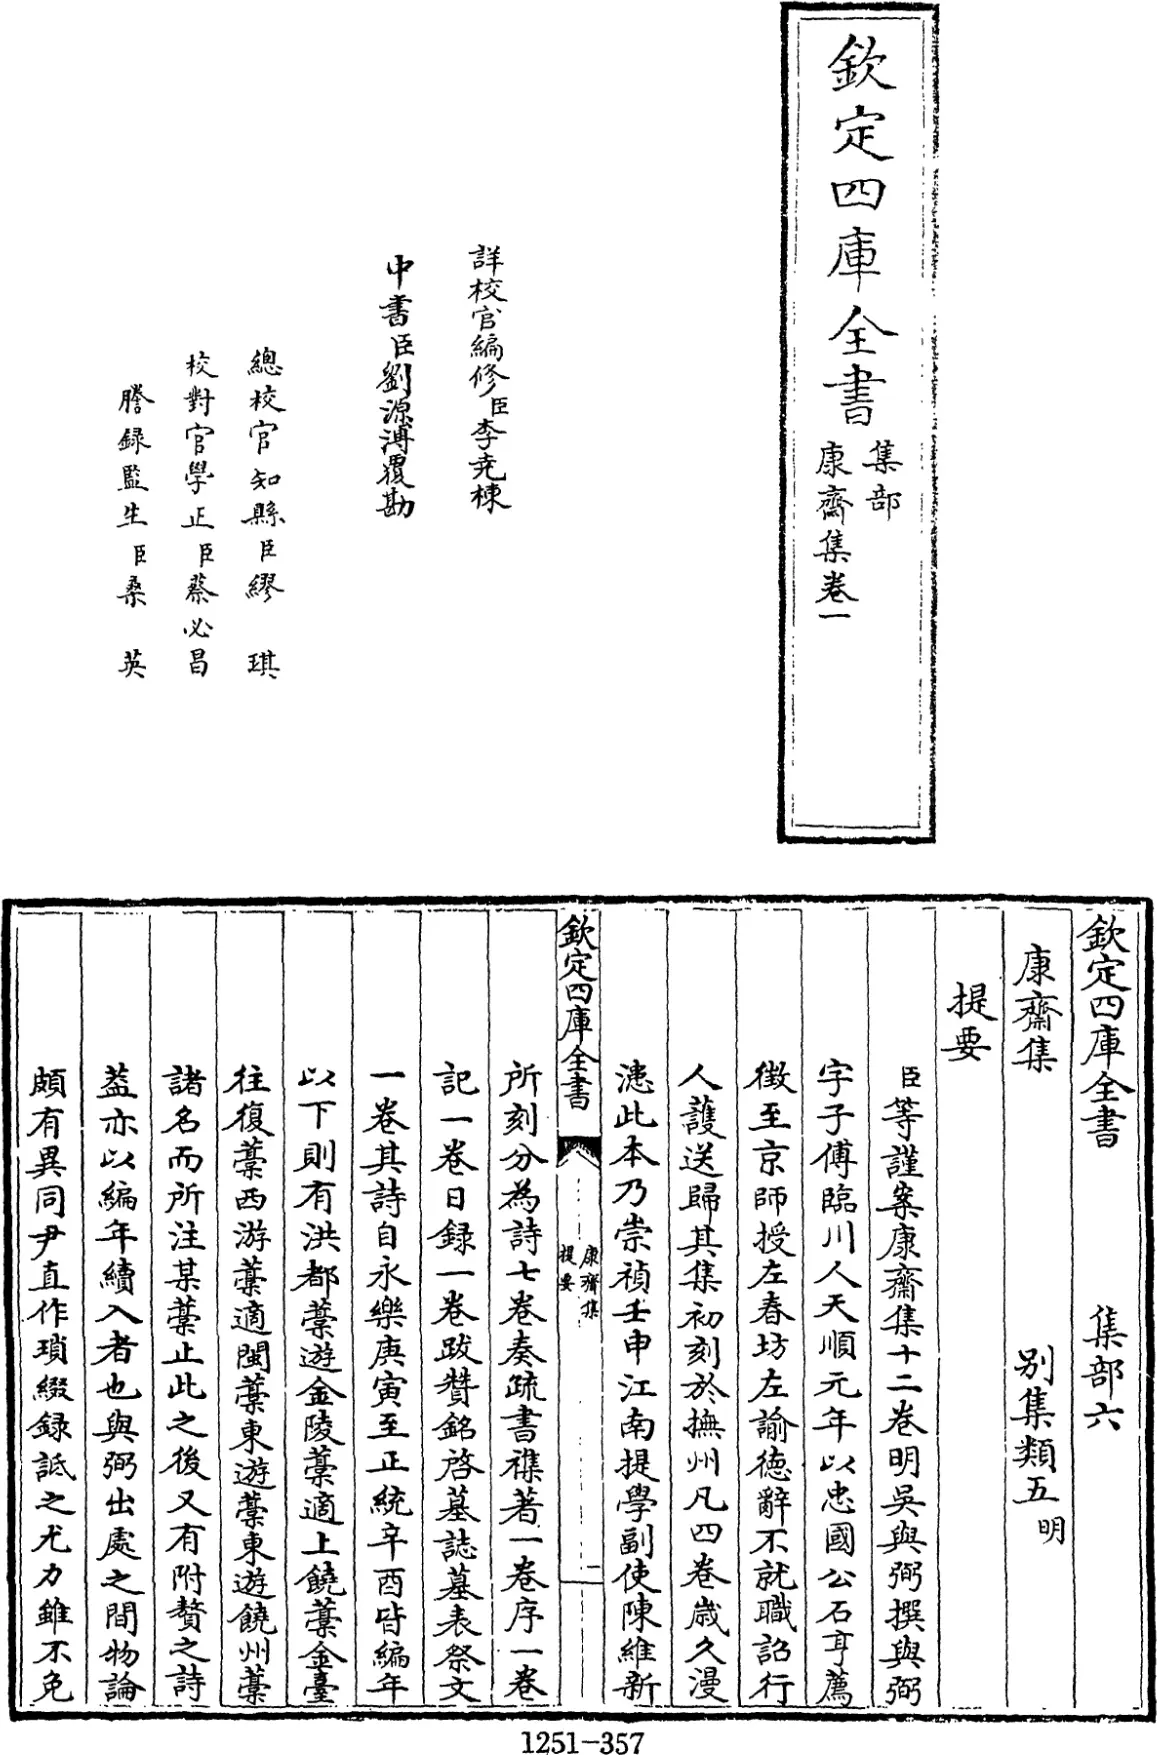 欽定四庫全書
集部
康齋集卷一
詳校官編修臣李堯棟
中書臣劉源溥覆勘
總校官知縣臣繆琪
校對官學正臣蔡必昌
謄錄監生臣桑英
欽定四庫全書 集部六
康齋集 別集類五明
提要
臣等謹案康齋集十二卷明吳與弼撰與弼
字子傅臨川人天順元年以忠國公石亨薦
徵至京師授左春坊左諭德辭不就職詔行
人護送歸其集初刻於撫州凡四卷歲久漫
漶此本乃崇禎壬申江南提學副使陳維新
欽定四庫全書
康齋集
提要
一
所刻分為詩七卷奏疏書襍著一卷序一卷
記一卷日錄一卷跋贊銘啓墓誌墓表祭文
一卷其詩自永樂庚寅至正統辛酉皆編年
以下則有洪都藁遊金陵藁適上饒藁金臺
往復藁西游藁適閩藁東遊藁東遊饒州藁
諸名而所注某藁止此之後又有附贅之詩
葢亦以編年續入者也與弼出處之間物論
頗有異同尹直作瑣綴錄詆之尤力雖不免
1251-357